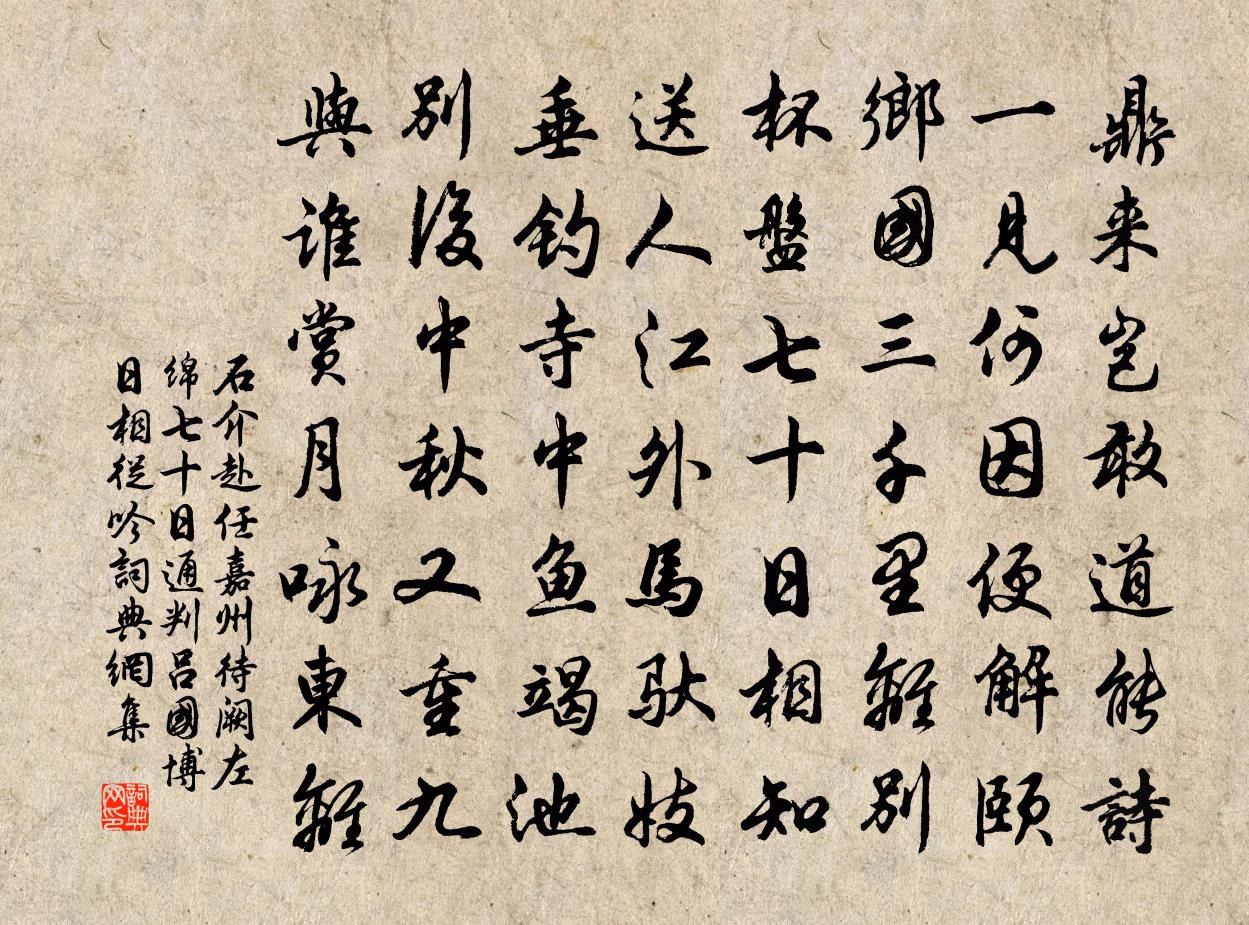 鼎来岂敢道能詩
一見何因便解頤
鄉國三千里離別
杯盤七十日相知
送人江外馬馱妓
垂釣寺中魚竭池
別後中秋又重九
與誰賞月咏東籬
石介赴任嘉州待阙左
绵七十日通判呂國博
日相從吟詞典網集
詞典网印